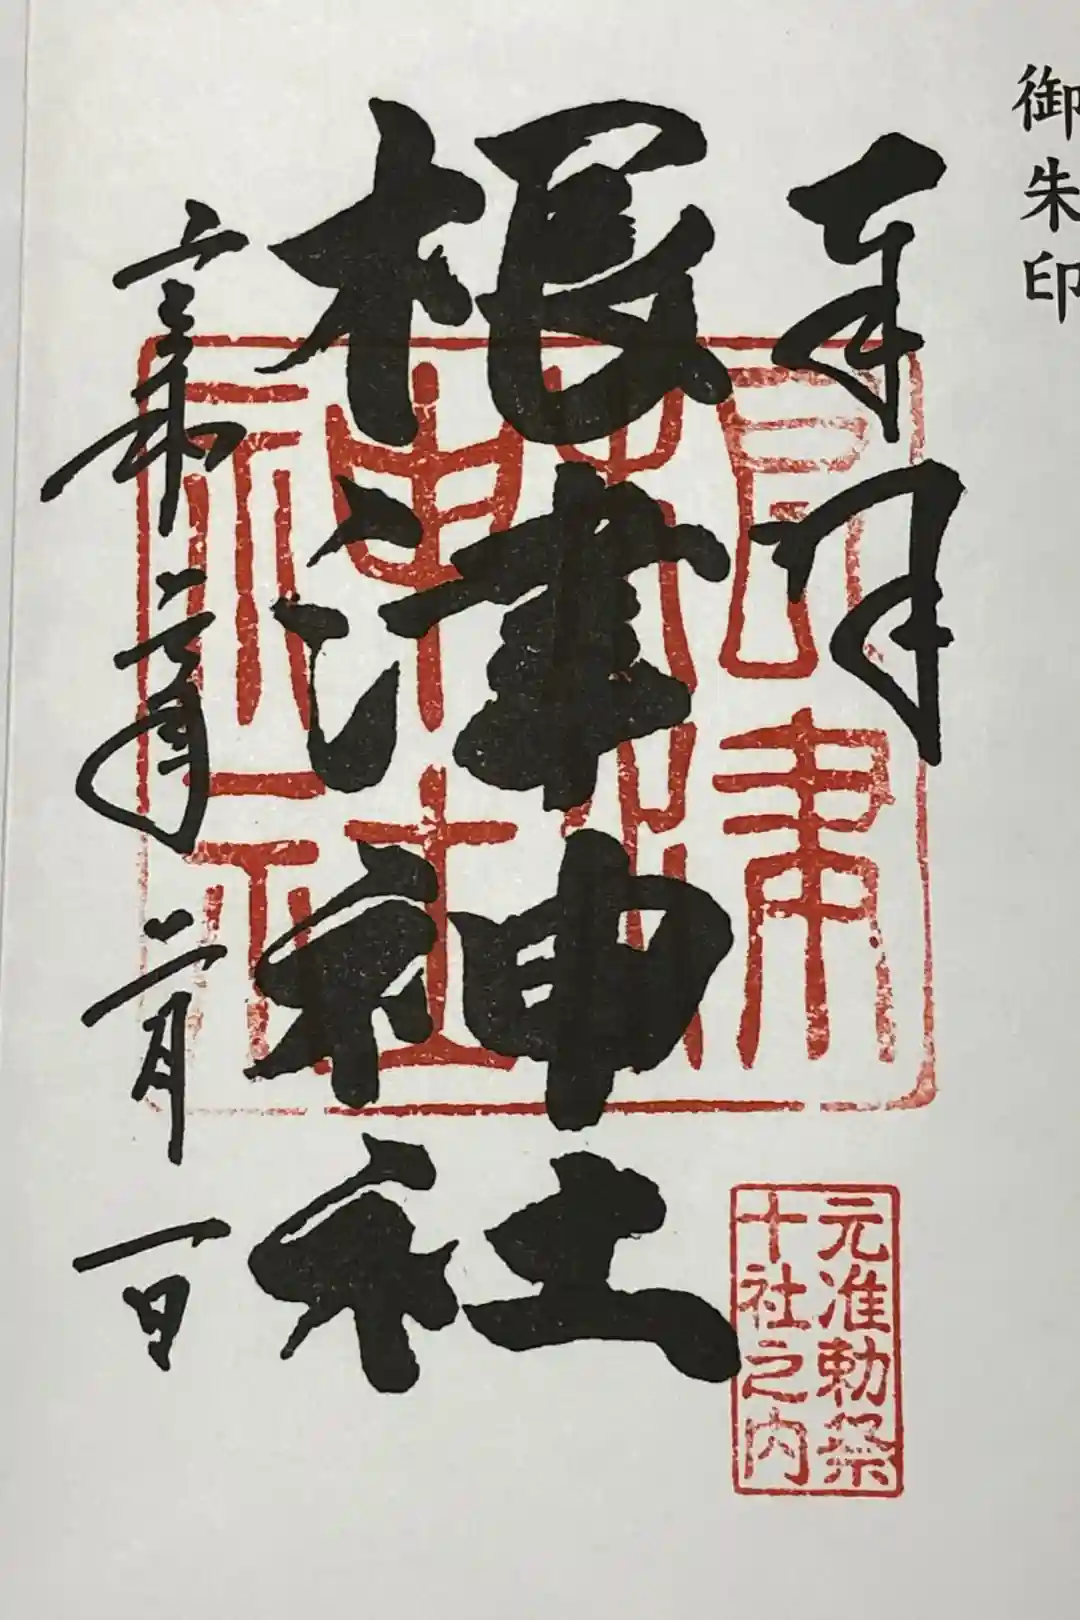 御朱印
奉拝
根津神社
根津
神社
元准勅祭
十社之内
令和年二月一日